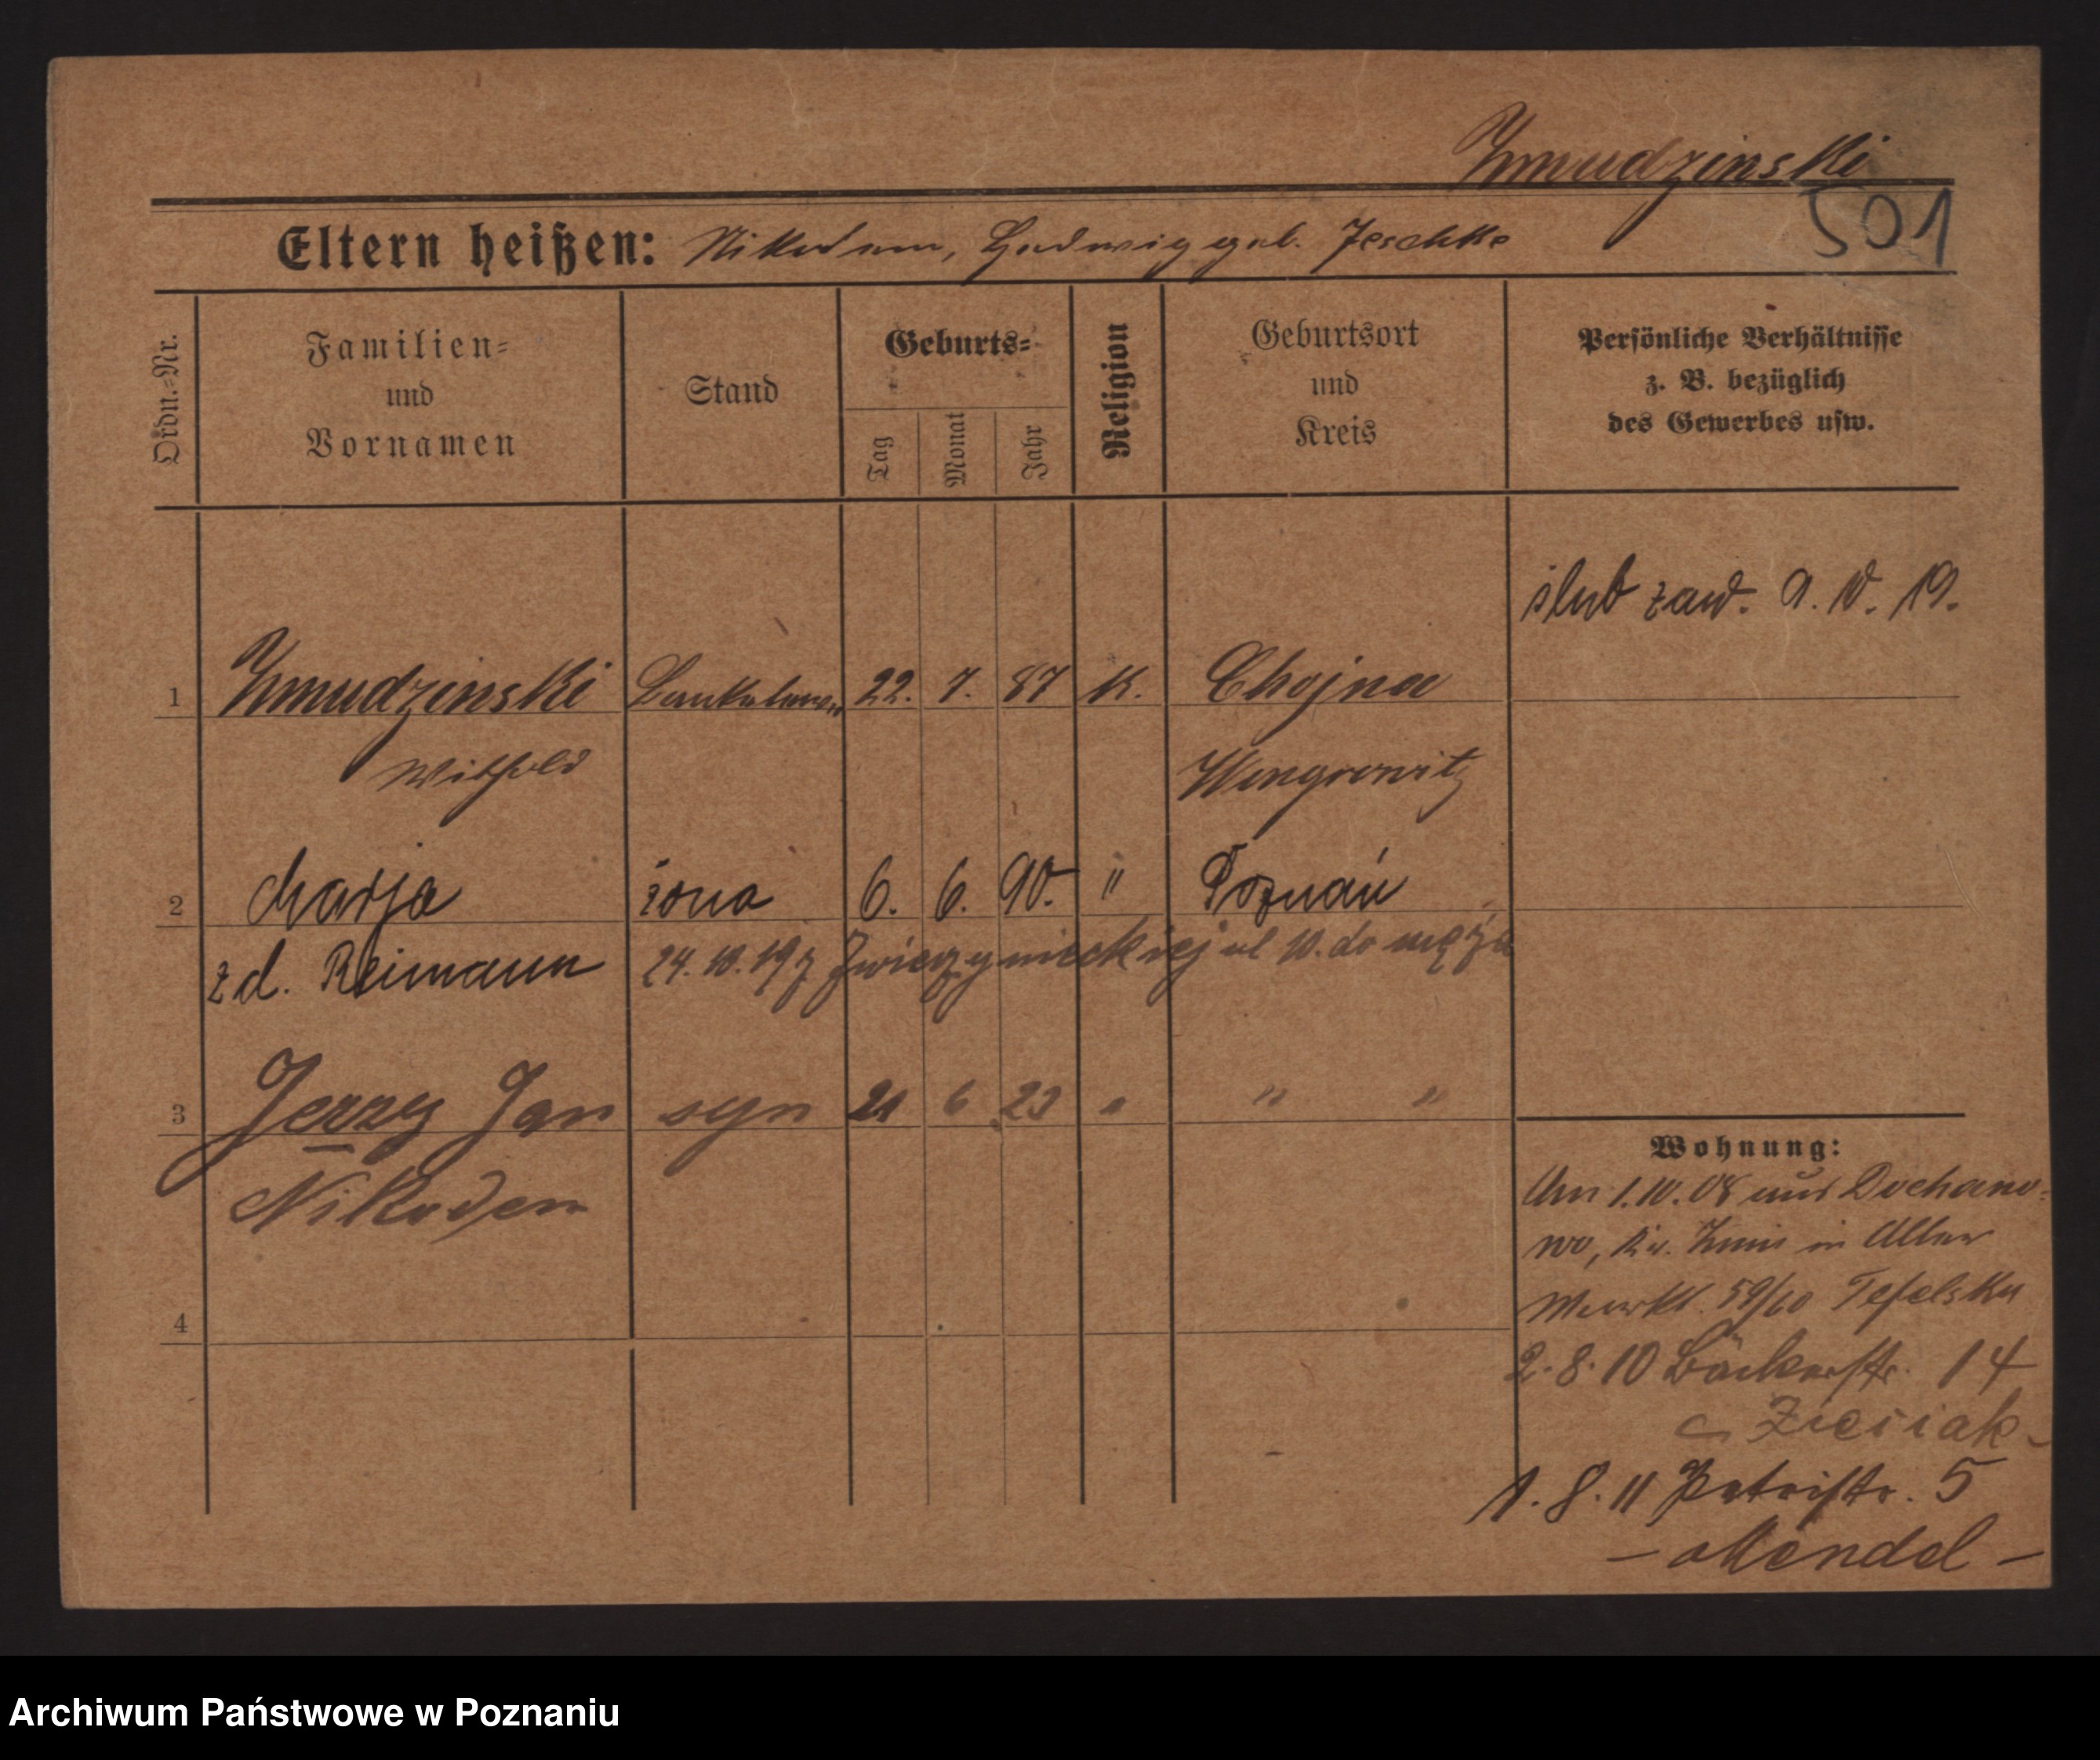 Zmudzinski
501
Eltern heißen: Nikodem, Hedwig geb. Jeschke
Ordn.-Nr.
Familien-
und
Vornamen
Stand
Geburts-
Tag
Monat
Jahr
Religion
Geburtsort
und
Kreis
Persönliche Verhältnisse
z. B. bezüglich
des Gewerbes usw.
ślub zaw. 9. 10. 19.
1 Zmudzinski 22. 7. 87 K. Chojna
Withold Wongrowitz
2 Marja żona 6. 6. 90. " Poznań
z d. Reimann 24. 10. 19 z Zwierzynieckiej ul 10. do męża
3 Jerzy Jan syn 21 6 23 " " "
Nikodem
4
Wohnung:
Am 1.10.08 aus Dochano-
wo, Kr. Znin in Alter
Markt. 59/60
2.8.10 Bäckerstr. 14
1.8.11 Petristr. 5
- Mendel -
Archiwum Państwowe w Poznaniu